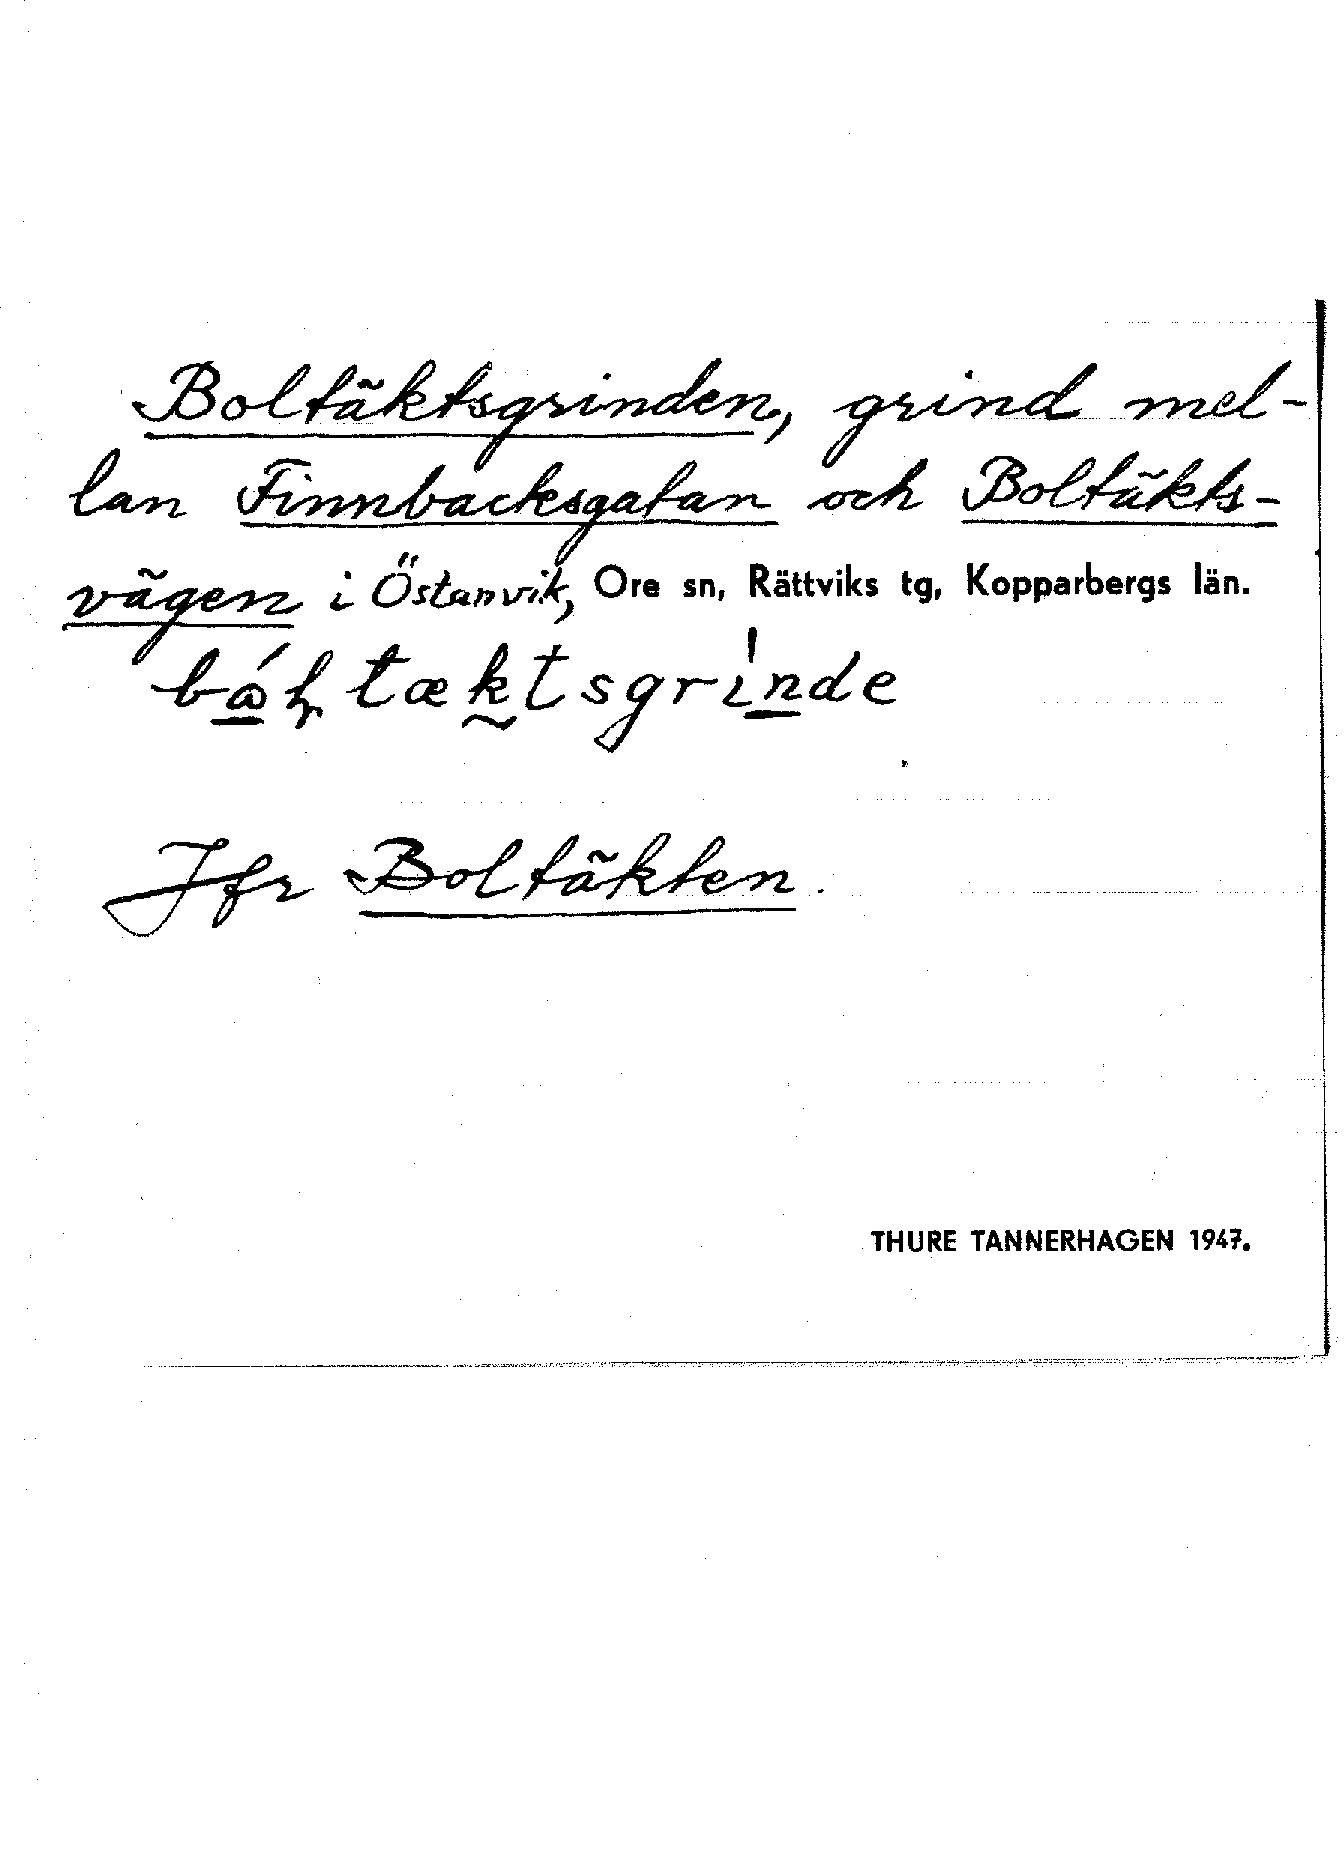 Boltäktsgrinden, grind mel-
lan Finnbacksgatan och Boltäkts-
vägen i Östanvik, Ore sn, Rättviks tg, Kopparbergs län.
Jfr Boltäkten.
THURE TANNERHAGEN 1947.